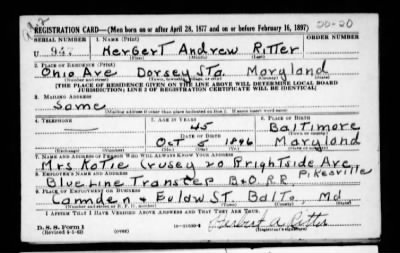 REGISTRATION CARD—(Men born on or after April 28, 1877 and on or before February 16, 1897)
SERIAL NUMBER 1. NAME (Print) ORDER NUMBER
U 947 Herbert Andrew Ritter
(First) (Middle) (Last)
2. PLACE OF RESIDENCE (Print)
Ohio Ave Dorsey Sta. Maryland
(Number and street) (Town, township, village, or city) (County) (State)
[THE PLACE OF RESIDENCE GIVEN ON THE LINE ABOVE WILL DETERMINE LOCAL BOARD
JURISDICTION; LINE 2 OF REGISTRATION CERTIFICATE WILL BE IDENTICAL]
3. MAILING ADDRESS
Same
[Mailing address if other than place indicated on line 2. If same insert word same]
4. TELEPHONE 5. AGE IN YEARS 6. PLACE OF BIRTH
— 45 Baltimore
DATE OF BIRTH (Town or county)
Oct 5 1896 Maryland
(Exchange) (Number) (Mo.) (Day) (Yr.) (State or country)
7. NAME AND ADDRESS OF PERSON WHO WILL ALWAYS KNOW YOUR ADDRESS
Mrs Katie Crusey 20 Brightside Ave
8. EMPLOYER'S NAME AND ADDRESS
Blue Line Transfer B&O. R.R. Pikesville
9. PLACE OF EMPLOYMENT OR BUSINESS
Camden & Eutaw ST. Balto, Md
(Number and street or R. F. D. number) (Town) (County) (State)
I AFFIRM THAT I HAVE VERIFIED ABOVE ANSWERS AND THAT THEY ARE TRUE.
D. S. S. Form 1
(Revised 4-1-42) (over)
Herbert A. Ritter
(Registrant's signature)